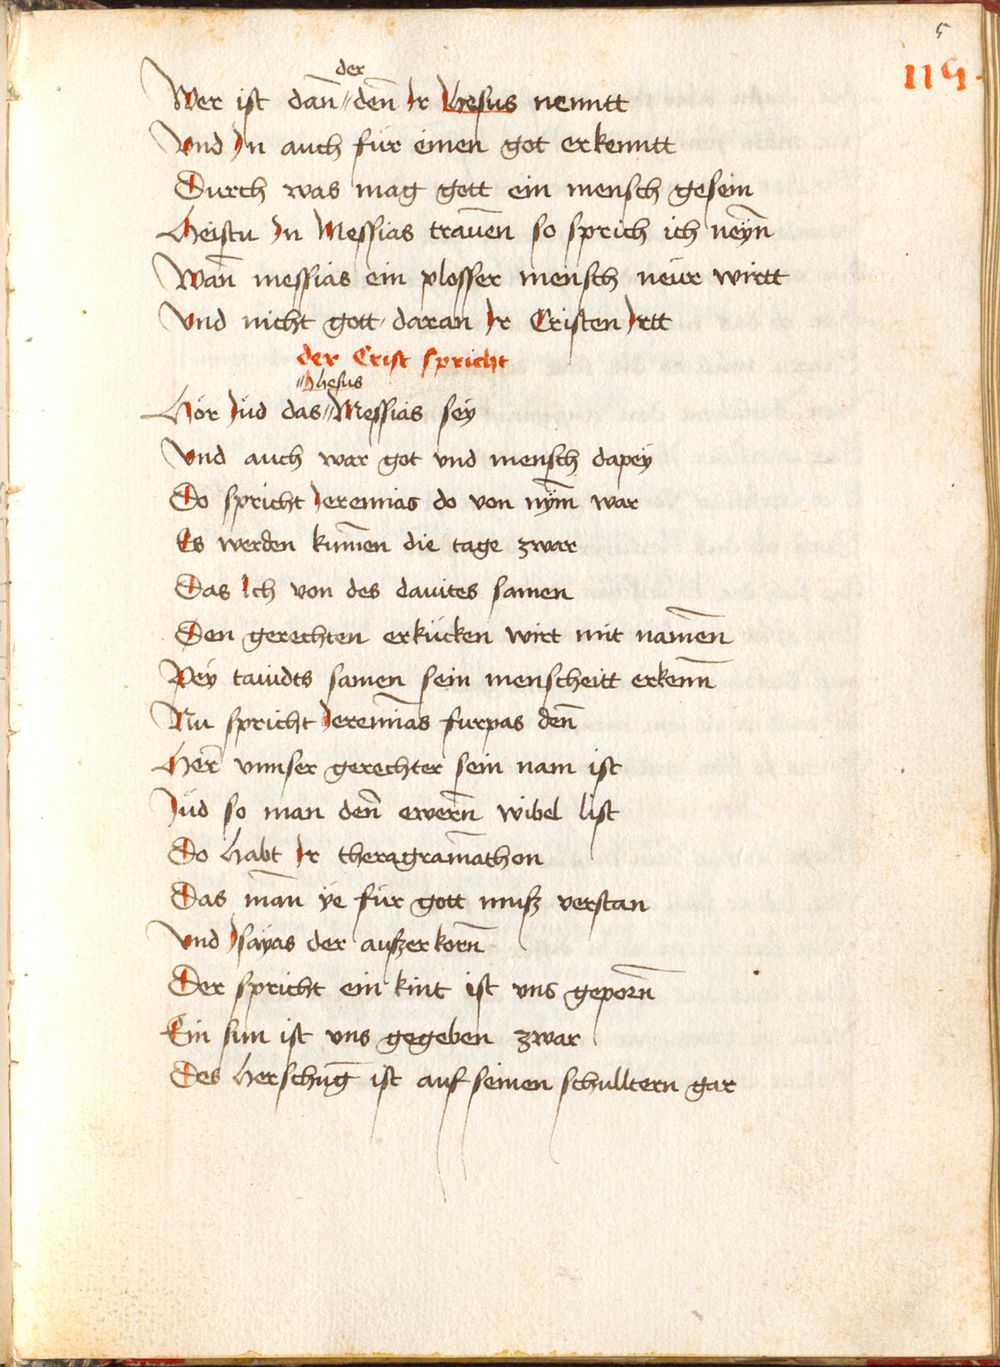 5
119
der
Wer ist dan̄ // den̄ Ir Jhesus nenntt
Vnd In auch für einen got erkenntt
Durch was mag gott ein mensch gesein
Heistu In Messias traūen so sprich ich neyn̄
Wan̄ messias ein plosser mensch neür wirtt
Vnd nicht gott daran Ir Cristen Irtt
der Crist spricht
// Jhesus
Hör Jüd das // Messias sey
Vnd auch war got vnd mensch dapeÿ
Do spricht Jeremias do von nÿm̄ war
Es werden kum̄en die tage zwar
Das Ich von des dauites samen
Den gerechten erkücken wirt mit nam̄en
Peÿ tauidts samen sein menscheitt erkenn̄
Nu spricht Jeremias furpas den̄
Her̄ vnnser gerechter sein nam ist
Jüd so man den̄ ewern̄ wibel list
Do habt Ir theragram̄athon
Das man̄ ye für gott musz verstan
Vnd Isayas der auszerkorn̄
Der spricht ein kint ist vns geporn̄
Ein sun ist vns gegeben zwar
Des herschuḡ ist auf seinen schulltern gar